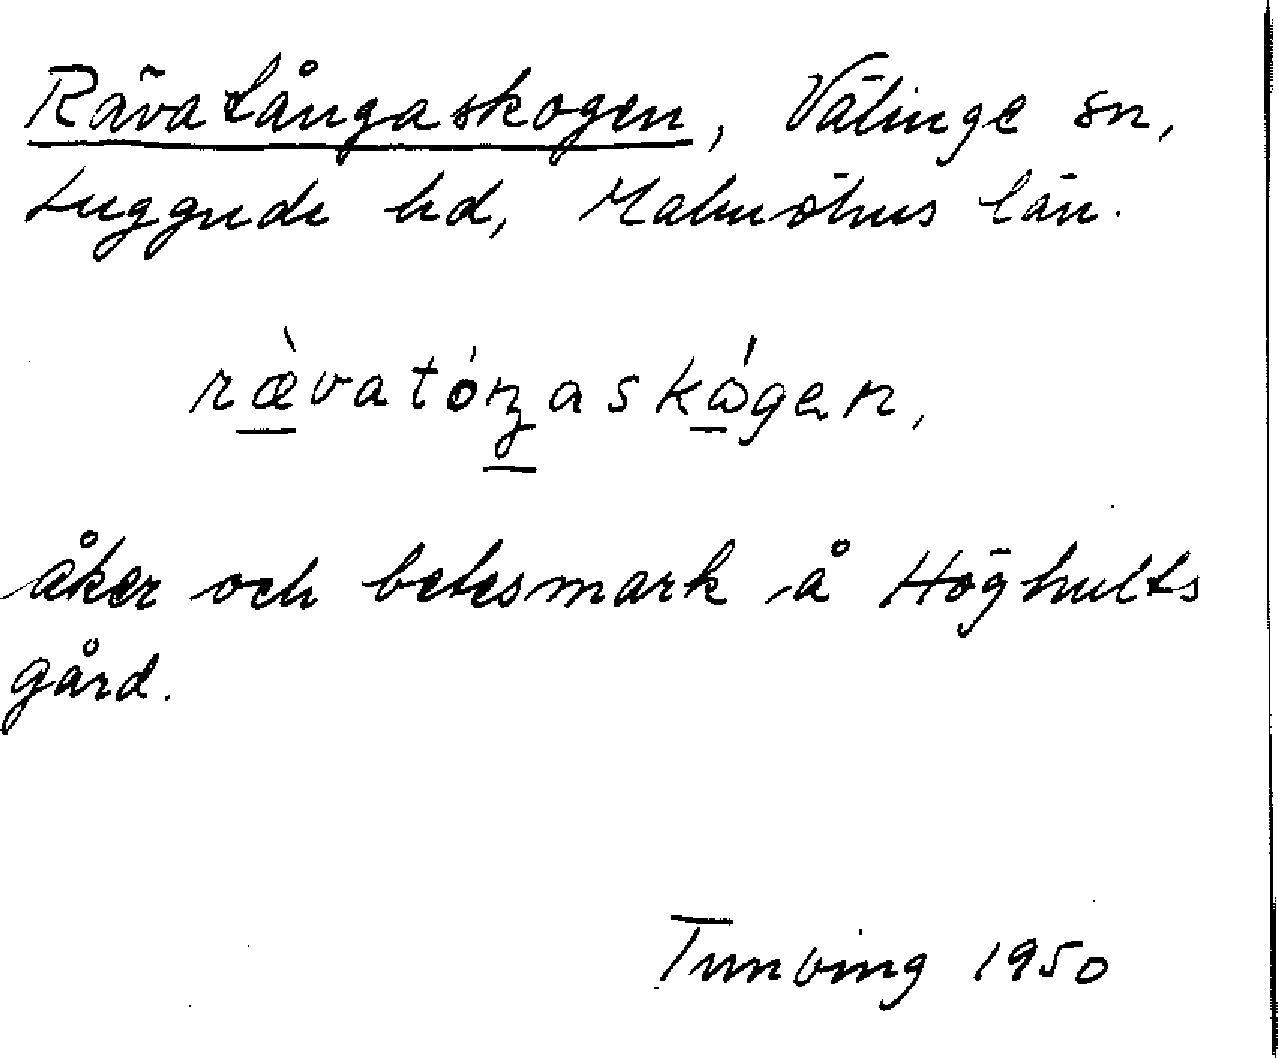 Rävatångaskogen, Välinge sn,
Luggude hd, Malmöhus län.
rævatóŋaskǻgen,
åker och betesmark å Höghults
gård.
Tunving 1950